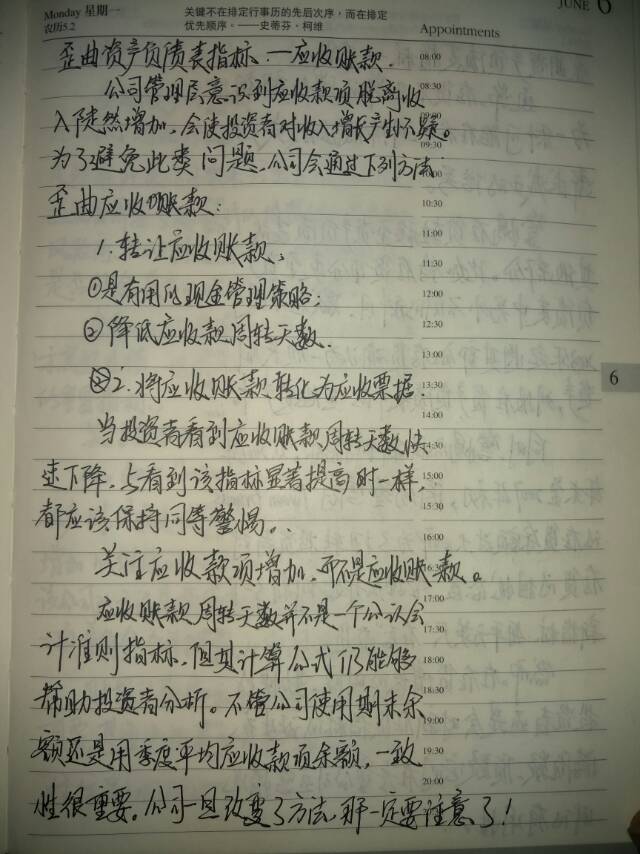 Monday 星期一
农历5.2
关键不在排定行事历的先后次序，而在排定
优先顺序。——史蒂芬·柯维
JUNE 6
Appointments
08:00
歪曲资产负债表指标.一应收账款.
08:30
公司管理层意识到应收款项脱离收
入陡然增加,会使投资者对收入增长产生怀疑。
09:30
为了避免此类问题,公司会通过下列方法
歪曲应收账款:
10:30
11:00
1.转让应收账款;
11:30
①是有用的现金管理策略;
12:00
②降低应收款周转天数.
12:30
13:00
2.将应收账款转化为应收票据.
13:30
6
14:00
当投资者看到应收账款周转天数快
14:30
速下降,与看到该指标显著提高时一样,
15:00
都应该保持同等警惕。
15:30
16:00
关注应收款项增加,而不是应收账款。
17:00
应收账款周转天数并不是一个公认会
17:30
计准则指标,但其计算公式仍能够
18:00
帮助投资者分析。不管公司使用期末余
18:30
19:00
额还是用季度平均应收款项余额,一致
19:30
20:00
性很重要。公司一旦改变了方法,那一定要注意了!